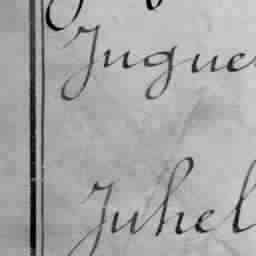 Jugue
Juhel